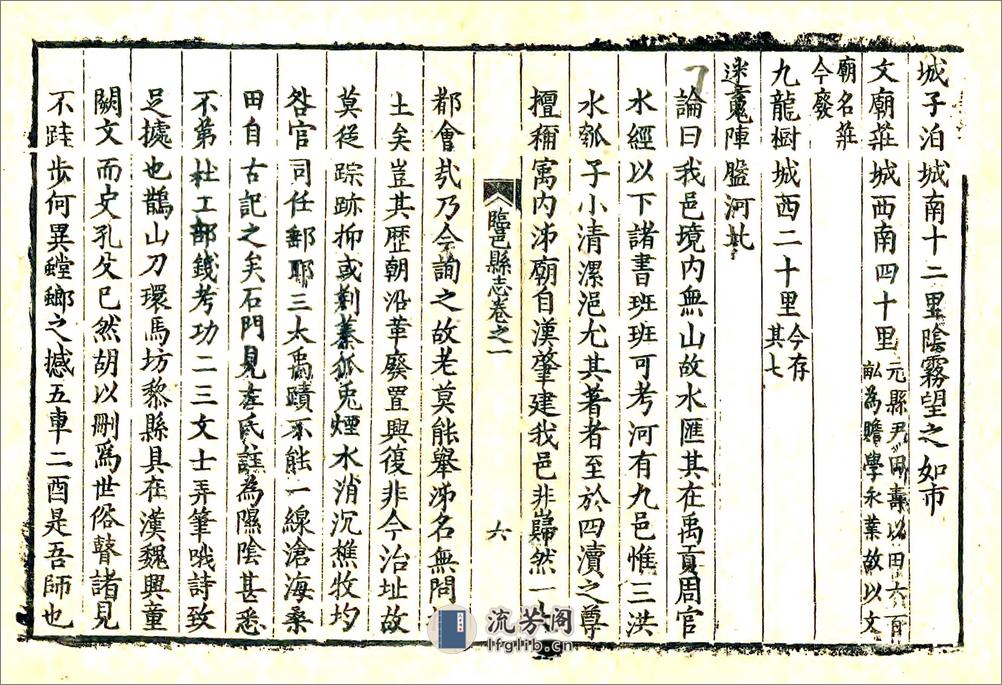 城子泊城南十二里陰霧望之如市
文廟莊城西南四十里元縣尹田壽以田六百
畝為贍學永業故以文
廟名莊
今廢
九龍樹城西二十里今存
其七
迷䰟陣盤河北
論曰我邑境内無山故水匯其在禹貢周官
水經以下諸書班班可考河有九邑惟三洪
水瓠子小清漯浥尤其著者至於四瀆之尊
擅稱寓内沛廟自漢肇建我邑非巋然一大
臨邑縣志卷之一
六
都會㢤乃今詢之故老莫能舉沛名無問
土矣豈其歴朝沿革廢置興復非今治址故
莫從踪跡抑或荆蓁狐兎煙水消沉樵牧圴
咎官司任郵耶三太禹蹟不能一線滄海桑
田自古記之矣石門見左氏註為隰陰甚悉
不第杜工部錢考功二三文士弄筆哦詩致
足據也鵲山刀環馬坊黎縣具在漢魏興童
闕文而史孔殳已然胡以刪爲世俗瞽諸見
不跬步何異螳螂之撼五車二酉是吾師也
流芳阁
lfglib.cn